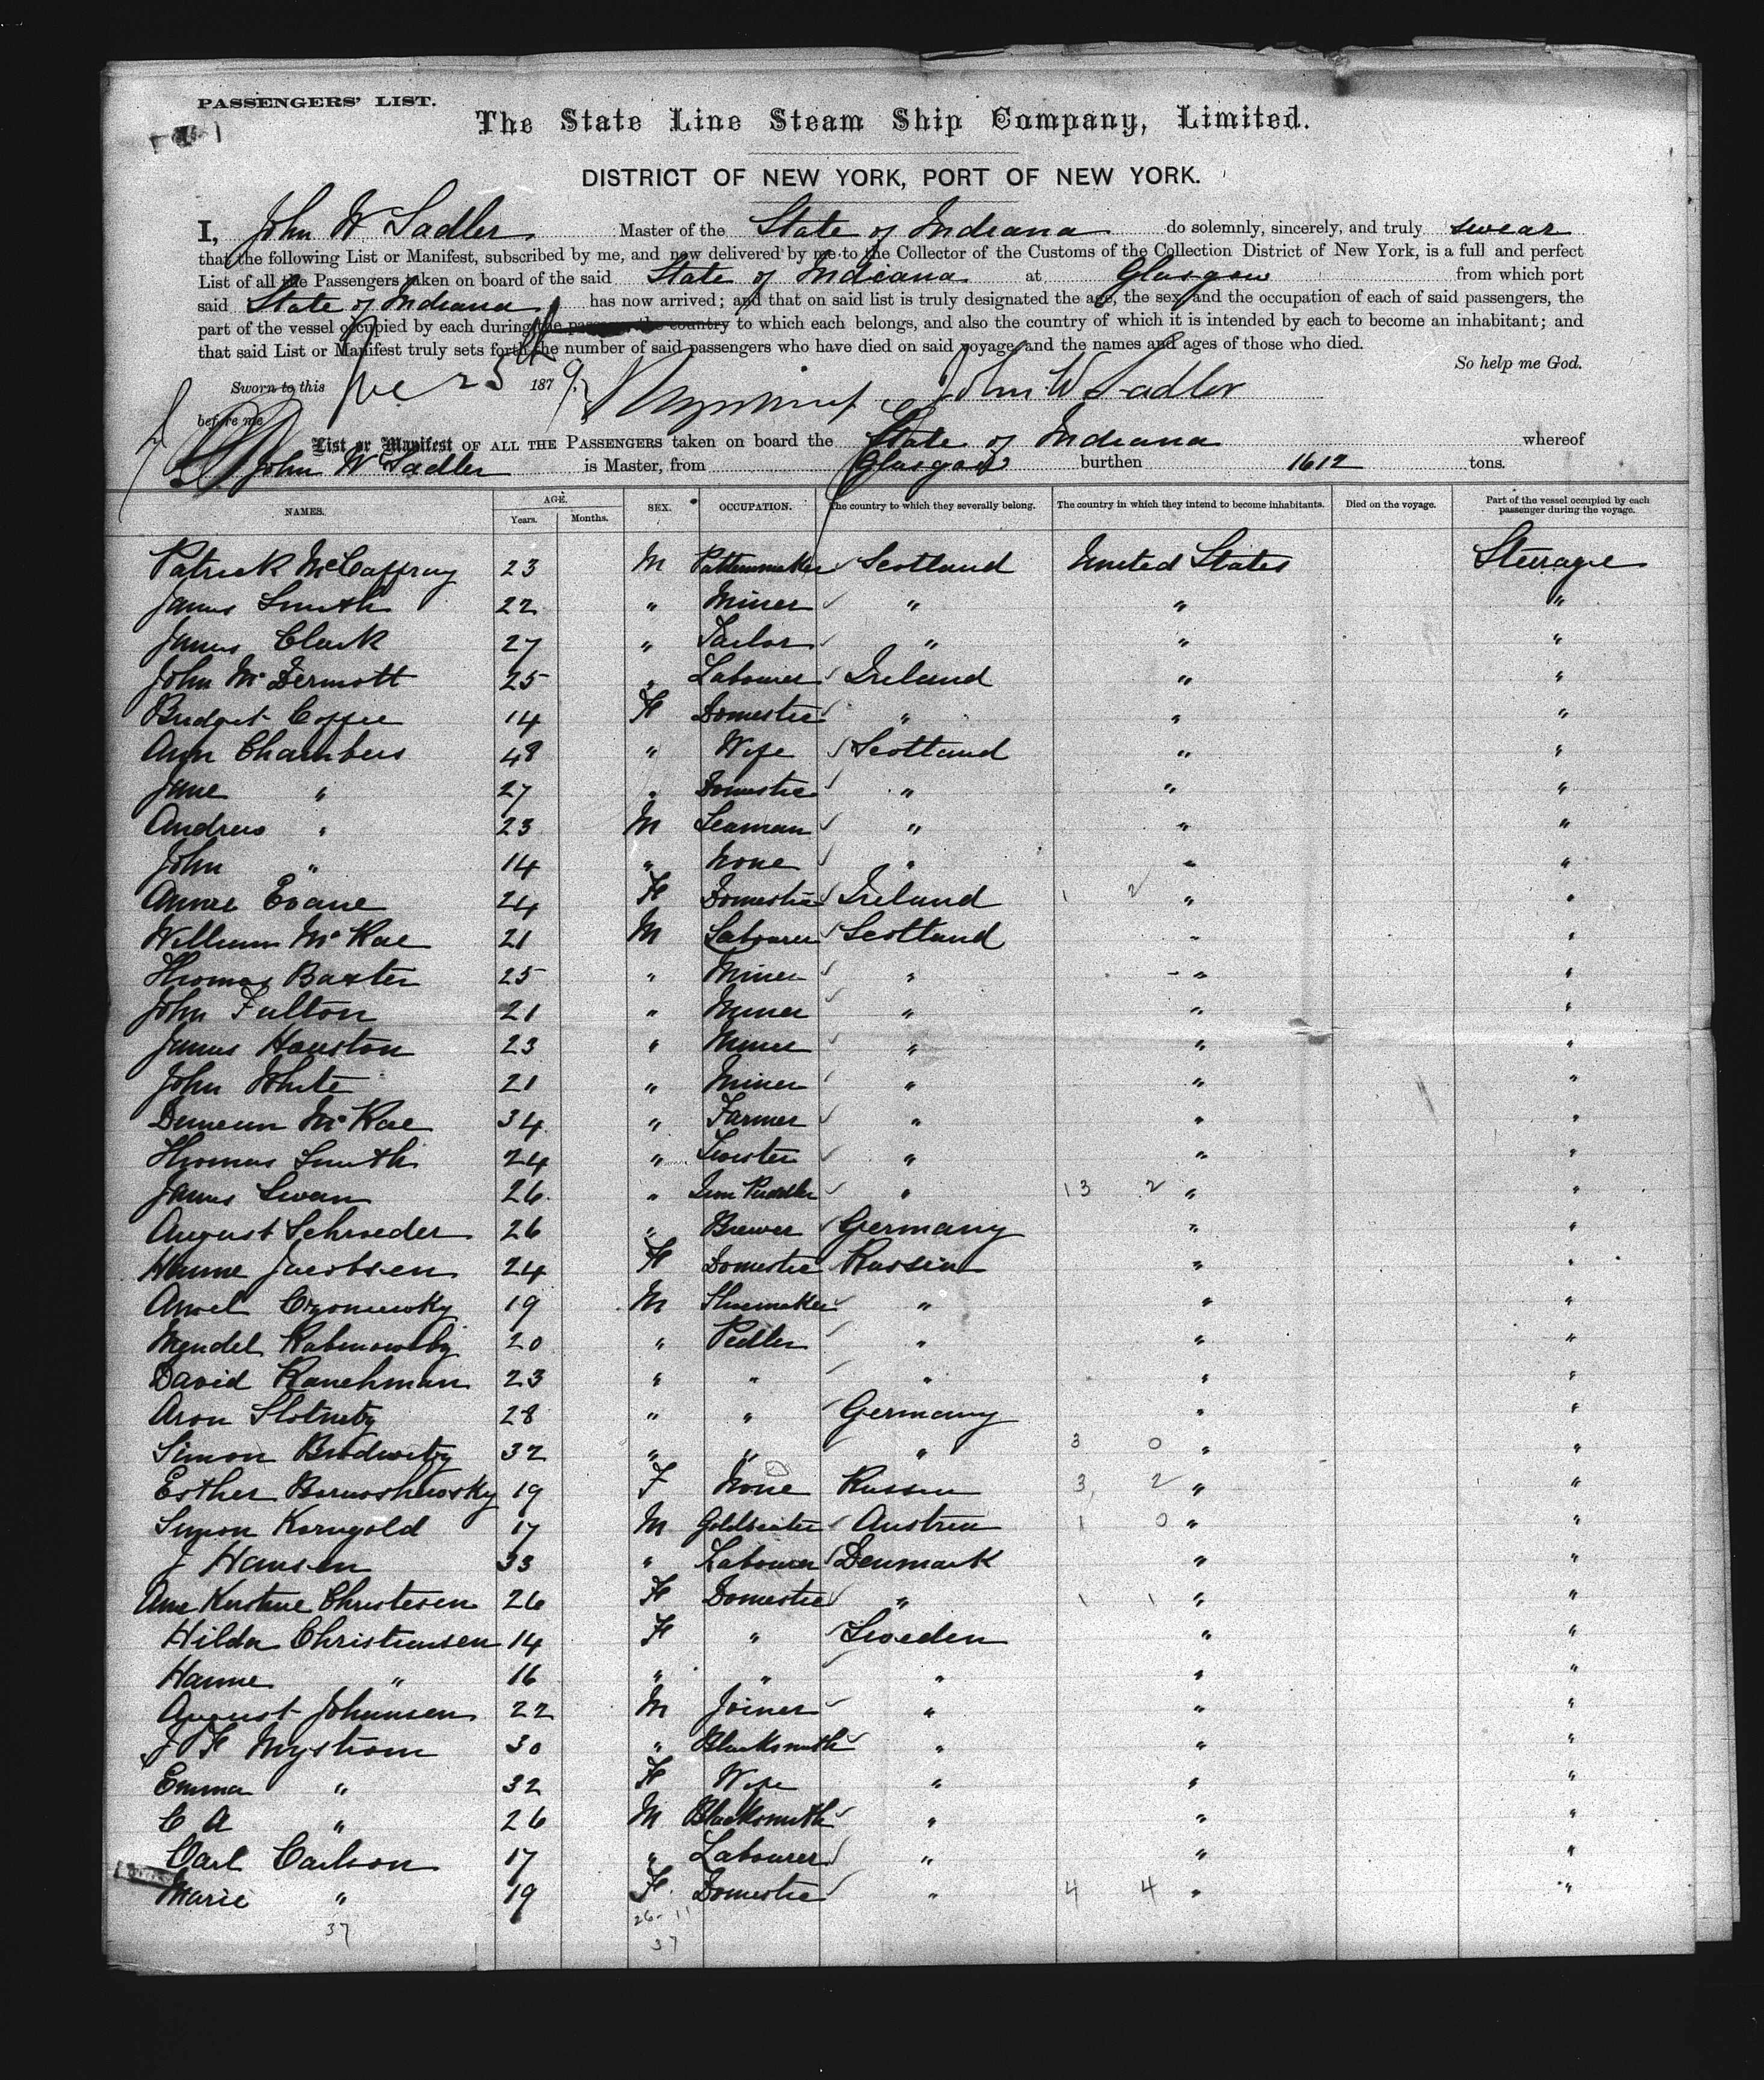 PASSENGERS' LIST.
The State Line Steam Ship Company, Limited.
DISTRICT OF NEW YORK, PORT OF NEW YORK.
I, John W Sadler Master of the State of Indiana do solemnly, sincerely, and truly swear
that the following List or Manifest, subscribed by me, and now delivered by me to the Collector of the Customs of the Collection District of New York, is a full and perfect
List of all the Passengers taken on board of the said State of Indiana at Glasgow from which port
said State of Indiana has now arrived; and that on said list is truly designated the age, the sex, and the occupation of each of said passengers, the
part of the vessel occupied by each during the passage the country to which each belongs, and also the country of which it is intended by each to become an inhabitant; and
that said List or Manifest truly sets forth the number of said passengers who have died on said voyage, and the names and ages of those who died.
So help me God.
Sworn to this Dec 25th 1879 John W Sadler
before me
List or Manifest OF ALL THE PASSENGERS taken on board the State of Indiana whereof
John W Sadler is Master, from Glasgow burthen 1612 tons.
NAMES. AGE. Years. Months. SEX. OCCUPATION. The country to which they severally belong. The country in which they intend to become inhabitants. Died on the voyage. Part of the vessel occupied by each passenger during the voyage.
Patrick McCaffray 23 M Patternmaker Scotland United States Steerage
James Smith 22 " Miner " " "
James Clark 27 " Tailor " " "
John McDermott 25 " Labourer Ireland " "
Bridget Coffee 14 F Domestic " " "
Ann Chambers 48 " Wife Scotland " "
Jane " 27 " Domestic " " "
Andrew " 23 M Seaman " " "
John " 14 " None " " "
Annie Evane 24 F Domestic Ireland 1 2 " "
William McRae 21 M Labourer Scotland " "
Thomas Baxter 25 " Miner " " "
John Fulton 21 " Miner " " "
James Houston 23 " Miner " " "
John White 21 " Miner " " "
Duncan McRae 34 " Farmer " " "
Thomas Smith 24 " " " "
James Swan 26 " Iron Puddler " 13 2 " "
August Schroeder 26 " Brewer Germany " "
Hanne Jacobsen 24 F Domestic Russia " "
19 M Shoemaker " " "
Mendel 20 " Pedler " " "
David Ranchman 23 " " " " "
Aron 28 " " Germany " "
Simon 32 " " " 3 0 " "
Esther 19 F None Russia 3 2 " "
Simon Korngold 17 M Goldbeater Austria 1 0 " "
J Hansen 33 " Labourer Denmark " "
Ane Kirstine Christesen 26 F Domestic " 1 1 " "
Hilda Christiansen 14 F " Sweden " "
Hanne " 16 " " " " "
August Johansen 22 M Joiner " " "
J F Nystrom 30 " Blacksmith " " "
Emma " 32 F Wife " " "
C A " 26 M Blacksmith " " "
Carl Carlson 17 " Labourer " " "
Marie " 19 F Domestic " 4 4 " "
37 26 - 11
37